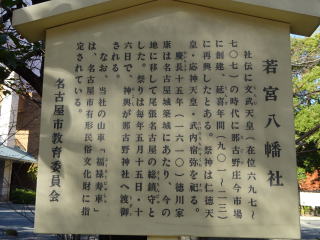 若宮八幡社
社伝に文武天皇(在位六九七~
七〇七)の時代に那古野庄今市場
に創建、延喜年間(九〇一~二三)
に再興したとある。祭神は仁徳天
皇・応神天皇・武内宿弥を祀る。
慶長十五年(一六一〇)徳川家
康は名古屋城築城にあたり、今の
地に移して尾張名古屋の総鎮守と
した。祭りは毎年五月十五日・十
六日で、神輿が那古野神社へ渡御
される。
なお、当社の山車「福禄寿車」
は、名古屋市有形民俗文化財に指
定されている。
名古屋市教育委員会